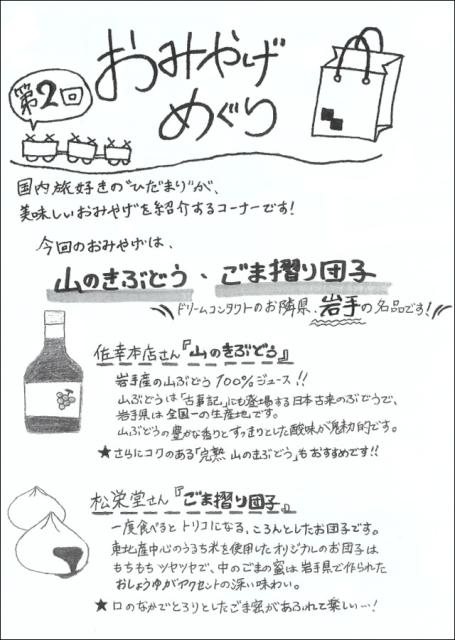 おみやげ
めぐり
第2回
国内旅好きの"ひだまり"が、
美味しいおみやげを紹介するコーナーです！
今回のおみやげは、
山のきぶどう、ごま摺り団子
ドリームコンタクトのお隣県、岩手の名品です！
佐幸本店さん『山のきぶどう』
岩手産の山ぶどう100%ジュース！！
山ぶどうは「古事記」にも登場する日本古来のぶどうで、
岩手県は全国一の生産地です。
山ぶどうの豊かな香りとすっきりとした酸味が魅力的です。
★さらにコクのある「完熟 山のきぶどう」もおすすめです！！
松栄堂さん『ごま摺り団子』
一度食べるとトリコになる、ころんとしたお団子です。
東北産中心のうるち米を使用したオリジナルのお団子は
もちもちツヤツヤで、中のごまの蜜は岩手県で作られた
おしょうゆがアクセントの深い味わい。
★口のなかでとろりとしたごま蜜があふれて楽しい…！